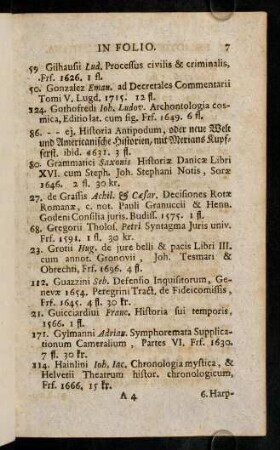 IN FOLIO. 7
59 Gilhausii Lud. Processus civilis & criminalis,
Frf. 1626. 1 fl.
50. Gonzalez Eman. ad Decretales Commentarii
Tomi V. Lugd. 1715. 12 fl.
124. Gothofredi Ioh. Ludov. Archontologia cos-
mica, Editio lat. cum fig. Frf. 1649. 6 fl.
86. - - ej. Historia Antipodum, oder neue Welt
und Americanische-Historien, mit Merians Kupf-
ferst. ibid. 1631. 3 fl.
80. Grammatici Saxonis Historiæ Danicæ Libri
XVI. cum Steph. Joh. Stephani Notis, Soræ
1646. 2 fl. 30 kr.
27. de Grassis Achil. & Cæsar, Decisiones Rotæ
Romanæ, c. not. Pauli Granuccii & Henn.
Godeni Consilia juris, Budiss. 1575. 1 fl.
68. Gregorii Tholos. Petri Syntagma Juris univ.
Frf. 1591. 1 fl. 30 kr.
23. Grotii Hug. de jure belli & pacis Libri III.
cum annot. Gronovii, Joh. Tesmari &
Obrechti, Frf. 1696. 4 fl.
112. Guazzini Seb. Defensio Inquisitorum, Ge-
nevæ 1654. Peregrini Tract. de Fideicomissis,
Frf. 1645. 4 fl. 30 kr.
21. Guicciardini Franc. Historia sui temporis,
1566. 1 fl.
171. Gylmanni Adrian. Symphoremata Supplica-
tionum Cameralium, Partes VI. Frf. 1630.
7 fl. 30 kr.
114. Hainlini Ioh. Iac. Chronologia mystica, &
Helvetii Theatrum histor. chronologicum,
Frf. 1666. 15 kr.
A 4 6. Harp-